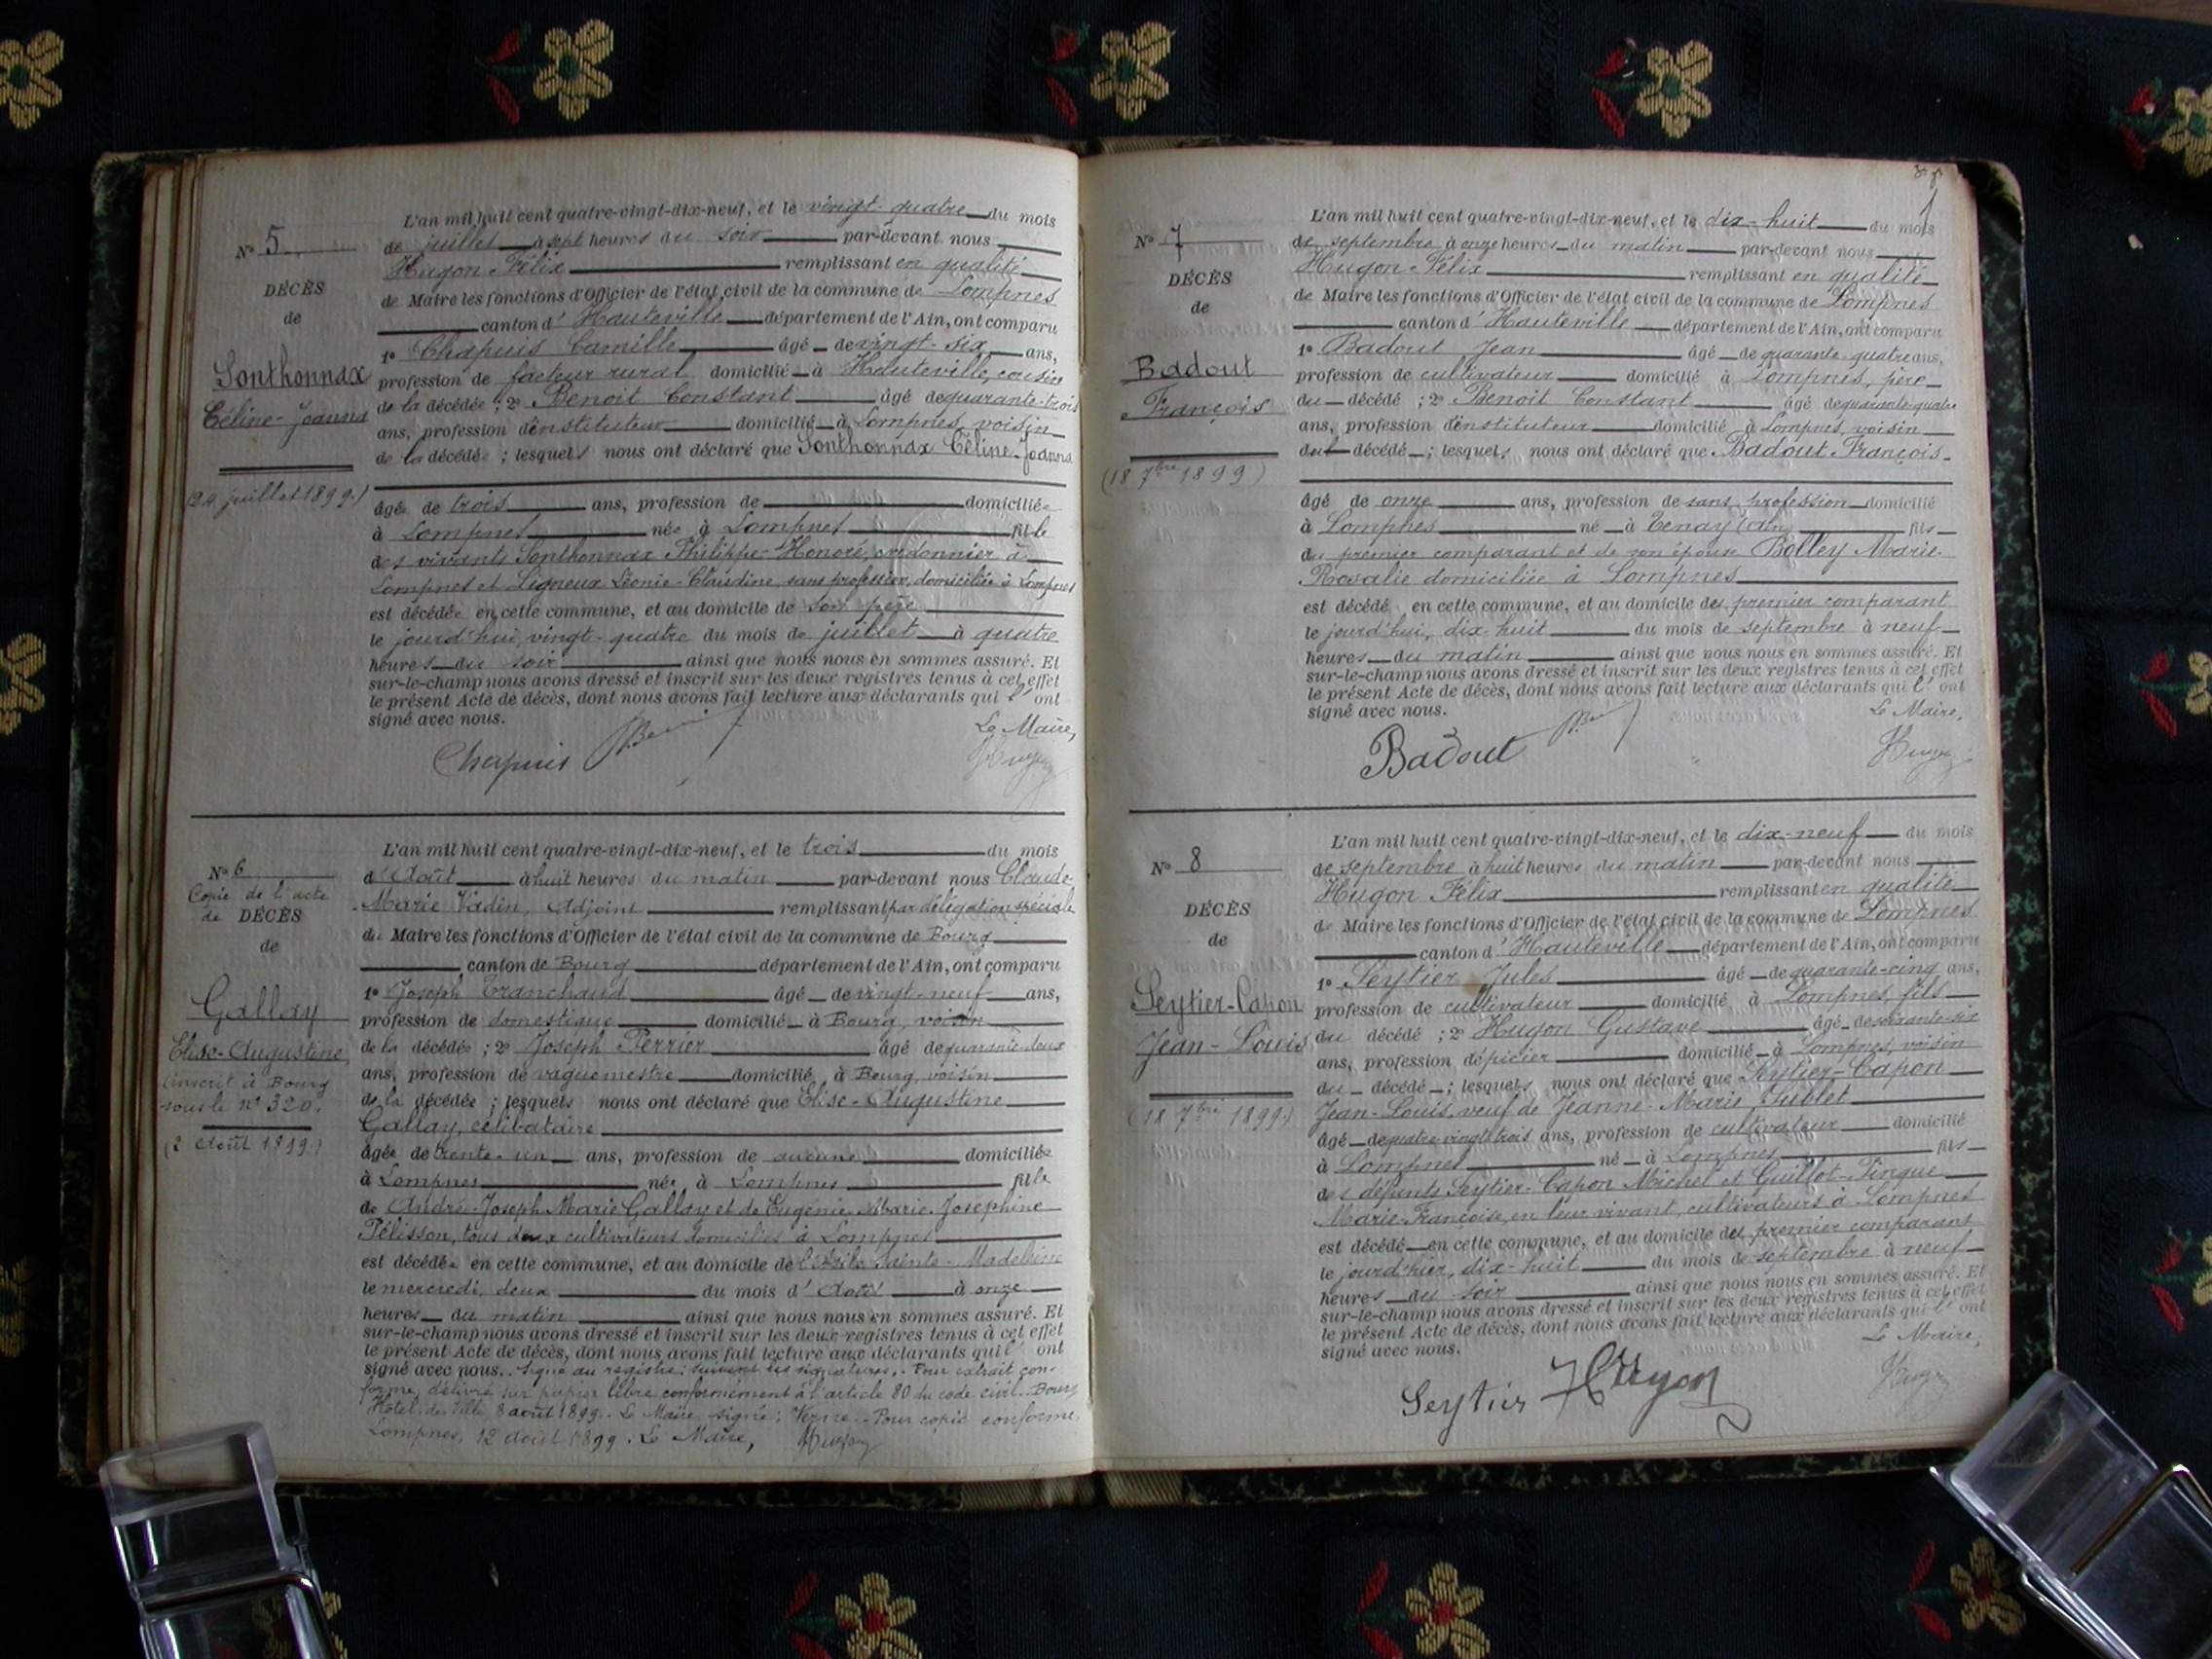 N° 5
DÉCÈS
de
Sonthonnax
Céline-Joanna
(24 juillet 1899.)
L'an mil huit cent quatre-vingt-dix-neuf, et le vingt-quatre du mois
de juillet à sept heures du soir par-devant nous
Hugon Félix remplissant en qualité
de Maire les fonctions d'Officier de l'état civil de la commune de Lompnes
canton d'Hauteville département de l'Ain, ont comparu
1° Chapuis Camille âgé de vingt-six ans,
profession de facteur rural domicilié à Hauteville, cousin
de la décédée ; 2° Benoit Constant âgé de quarante-trois
ans, profession d'instituteur domicilié à Lompnes, voisin
de la décédée ; lesquels nous ont déclaré que Sonthonnax Céline-Joanna
âgée de trois ans, profession de domiciliée
à Lompnes née à Lompnes fille
des vivants Sonthonnax Philippe-Honoré, cordonnier à
Lompnes et Ligneux Léonie-Claudine, sans profession, domiciliée à Lompnes
est décédée en cette commune, et au domicile de son père
le jourd'hui, vingt-quatre du mois de juillet à quatre
heures du soir ainsi que nous nous en sommes assuré. Et
sur-le-champ nous avons dressé et inscrit sur les deux registres tenus à cet effet
le présent Acte de décès, dont nous avons fait lecture aux déclarants qui l'ont
signé avec nous.
Le Maire,
Chapuis Hugon
N° 6
Copie de l'acte
de DÉCÈS
de
Gallay
Elise-Augustine
(inscrit à Bourg
sous le n° 320.
(2 Août 1899.)
L'an mil huit cent quatre-vingt-dix-neuf, et le trois du mois
d'Août à huit heures du matin par-devant nous Claude-
Marie Vadin, Adjoint remplissant par délégation spéciale
du Maire les fonctions d'Officier de l'état civil de la commune de Bourg
canton de Bourg département de l'Ain, ont comparu
1° Joseph Tranchand âgé de vingt-neuf ans,
profession de domestique domicilié à Bourg, voisin
de la décédée ; 2° Joseph Perrier âgé de quarante-deux
ans, profession de vaguemestre domicilié à Bourg, voisin
de la décédée ; lesquels nous ont déclaré que Elise-Augustine
Gallay, célibataire
âgée de trente-un ans, profession de aucune domiciliée
à Lompnes née à Lompnes fille
de André-Joseph-Marie Gallay et de Eugénie-Marie-Josephine
Pélisson, tous deux cultivateurs domiciliés à Lompnes
est décédée en cette commune, et au domicile de l'Asile Sainte-Madeleine
le mercredi, deux du mois d'Août à onze
heures du matin ainsi que nous nous en sommes assuré. Et
sur-le-champ nous avons dressé et inscrit sur les deux registres tenus à cet effet
le présent Acte de décès, dont nous avons fait lecture aux déclarants qui l'ont
signé avec nous. Signé au registre: suivent les signatures. Pour extrait con-
forme, délivré sur papier libre conformément à l'article 80 du code civil. Bourg
Hôtel de Ville 8 août 1899. Le Maire, signé: Verne. Pour copie conforme,
Lompnes, 12 août 1899. Le Maire, Hugon
N° 7
DÉCÈS
de
Badout
François
(18 7bre 1899)
L'an mil huit cent quatre-vingt-dix-neuf, et le dix-huit du mois
de septembre à onze heures du matin par-devant nous
Hugon Félix remplissant en qualité
de Maire les fonctions d'Officier de l'état civil de la commune de Lompnes
canton d'Hauteville département de l'Ain, ont comparu
1° Badout Jean âgé de quarante-quatre ans,
profession de cultivateur domicilié à Lompnes, père
du décédé ; 2° Benoit Constant âgé de quarante-quatre
ans, profession d'instituteur domicilié à Lompnes, voisin
du décédé ; lesquels nous ont déclaré que Badout François
âgé de onze ans, profession de sans profession domicilié
à Lompnes né à Tenay (Ain) fils
du premier comparant et de son épouse Bolley Marie-
Rosalie domiciliée à Lompnes
est décédé en cette commune, et au domicile du premier comparant
le jourd'hui, dix-huit du mois de septembre à neuf
heures du matin ainsi que nous nous en sommes assuré. Et
sur-le-champ nous avons dressé et inscrit sur les deux registres tenus à cet effet
le présent Acte de décès, dont nous avons fait lecture aux déclarants qui l'ont
signé avec nous.
Le Maire,
Badout Hugon
N° 8
DÉCÈS
de
Seytier-Capon
Jean-Louis
(18 7bre 1899.)
L'an mil huit cent quatre-vingt-dix-neuf, et le dix-neuf du mois
de septembre à huit heures du matin par-devant nous
Hugon Félix remplissant en qualité
de Maire les fonctions d'Officier de l'état civil de la commune de Lompnes
canton d'Hauteville département de l'Ain, ont comparu
1° Seytier Jules âgé de quarante-cinq ans,
profession de cultivateur domicilié à Lompnes, fils
du décédé ; 2° Hugon Gustave âgé de soixante-six
ans, profession d'épicier domicilié à Lompnes, voisin
du décédé ; lesquels nous ont déclaré que Seytier-Capon
Jean-Louis, veuf de Jeanne-Marie Sublet
âgé de quatre-vingt-trois ans, profession de cultivateur domicilié
à Lompnes né à Lompnes fils
des défunts Seytier-Capon Michel et Guillot-Pingue
Marie-Françoise, en leur vivant, cultivateurs à Lompnes
est décédé en cette commune, et au domicile du premier comparant
le jourd'hier, dix-huit du mois de septembre à neuf
heures du soir ainsi que nous nous en sommes assuré. Et
sur-le-champ nous avons dressé et inscrit sur les deux registres tenus à cet effet
le présent Acte de décès, dont nous avons fait lecture aux déclarants qui l'ont
signé avec nous.
Le Maire,
Seytier Hugon Hugon